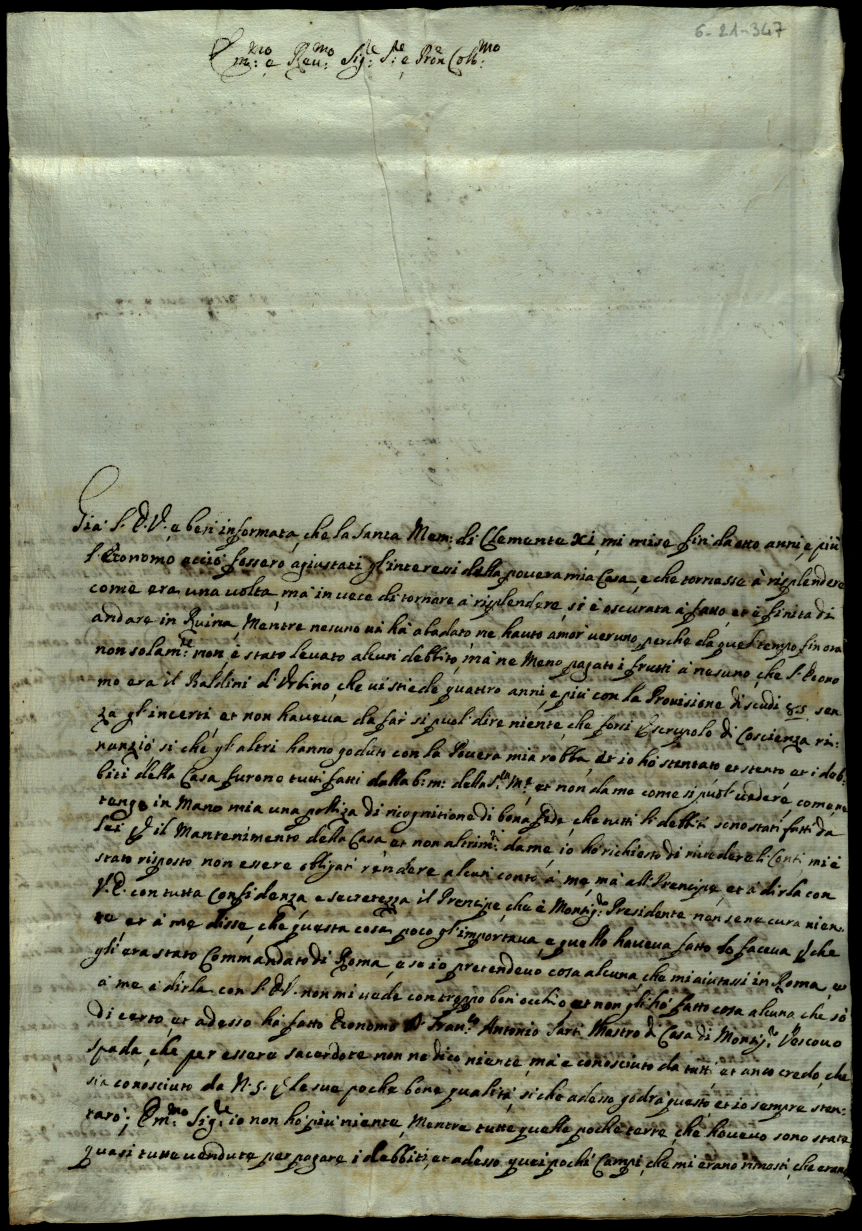 6-21-347
Em:mo e Reu:mo Sig:re S:re e Pron Col:mo
Già l'E.V. è ben informata, che la Santa Mem: di Clemente XI, mi mise fin da otto anni e più
l'Economo acciò fossero agiustati gl'interessi della povera mia Casa, e che tornasse à risplendere
come era una volta, mà in vece di tornare à risplendere, si è oscurata à fatto, et è finita di
andare in Ruina, Mentre nesuno ui hà abadato ne hauto amor veruno, perche da quel tempo fin ora
non solam:te non è stato levato alcun debbito, mà ne Meno pagato i frutti à nesuno, che l'Econo
mo era il Baldini d'Urbino, che ui stiede quattro anni e più con la Provisione di scudi 85 sen
za gl'incerti et non haveva da far si puol dire niente, che forsi Escrupolo di Coscienza ri:
nunziò si che gl'altri hanno goduto con la Povera mia robba, et io hò stentato et stento, et i deb:
biti della Casa furono tutti fatti dalla b:m: della S:ra M:e et non da me come si puol vedere, come ne
tengo in Mano mia una polliza di ricognitione di bona fede, che tutti li debbiti sono stati fatti da
Lei p il Mantenimento della Casa et non altrim:ti da me, io hò richiesto di rivedere li Conti, mi è
stato risposto non essere obligati rendere alcun conto à me, mà all Prencipe, et à dirla con
V.E. con tutta Confidenza e secretezza il Prencipe che è Monsig:r Presidente non se ne cura nien:
te et à me disse, che questa cosa poco gl'importava, e quello haveva fatto lo faceva p che
gli era stato Commandato di Roma, e se io pretendevo cosa alcuna, che mi aiutassi in Roma, e
à me à dirla con l'E.V. non mi vede con troppo bon occhio, et non gli hò fatto cosa alcuna che sò
di certo et adesso hà fatto Economo D Fran:co Antonio Sarti Mastro di Casa di Monsig:r Vescovo
Spada, che per essere sacerdote non ne dico niente, mà è conosciuto da tutti, et anco credo, che
sia conosciuto da N.S. p le sue poche bone qualità, si che adesso godrà questo, et io sempre sten:
tarò; Em:mo Sig:re io non hò più niente, Mentre tutte quelle poche terre, che havevo sono state
quasi tutte vendute per pagare i debbiti, et adesso quei pochi Campi, che mi erano rimasti, che eran